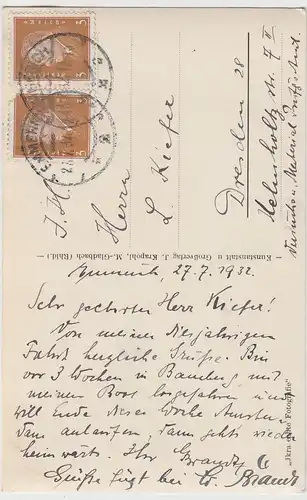 Herrn
L. Kiefer
Dresden 28
Helmholtz str. 7 II
Kunstanstalt u. Großverlag J. Krapohl, M.-Gladbach (Rhld.)
Emmerich, 27.7.1932.
Sehr geehrter Herr Kiefer!
Von meiner diesjährigen
Fahrt herzliche Grüße. Bin
vor 3 Wochen in Bamberg mit
meinem Boot losgefahren und
will Ende dieser Woche
dann anlaufen dann gehts wieder
heimwärts. Ihr Brandt
Grüße fügt bei G. Brandt
"Jkra echte Fotografie"